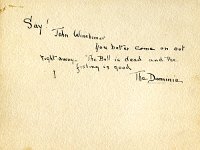 Say!
John
You better come on out
right away. The Bull is dead and the
fishing is good
!
The Dominie